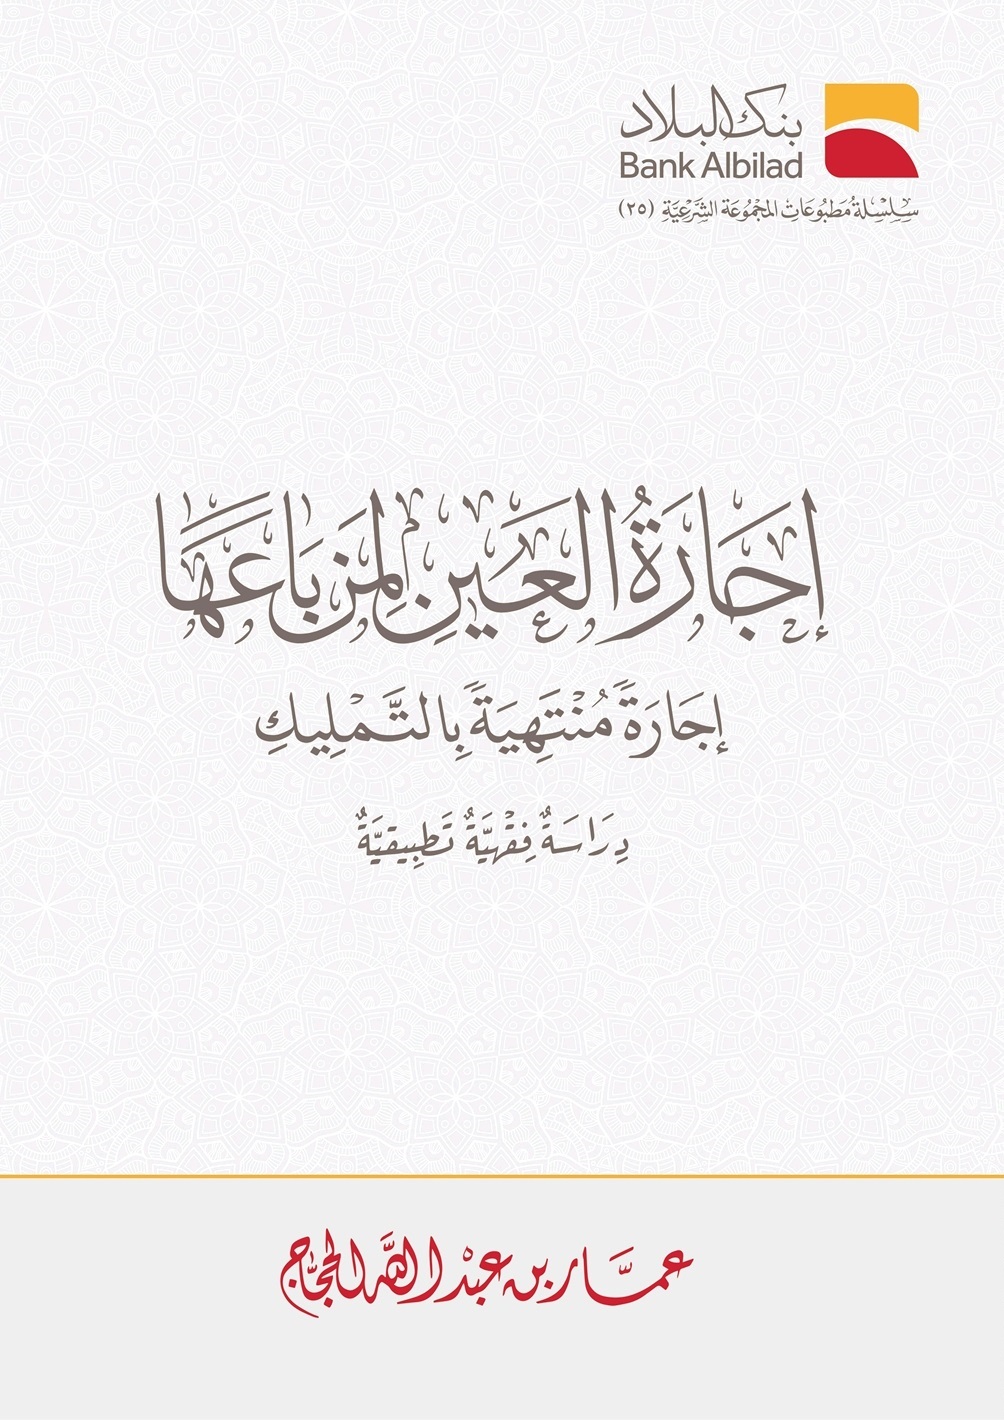 بنك البلاد
Bank Albilad
سِلْسِلَةُ مَطْبُوعَاتِ المَجْمُوعَةِ الشَّرْعِيَّةِ (٢٥)
إِجَارَةُ العَيْنِ لِمَنْ بَاعَهَا
إِجَارَةً مُنْتَهِيَةً بِالتَّمْلِيكِ
دِرَاسَةٌ فِقْهِيَّةٌ تَطْبِيقِيَّةٌ
عمَّار بن عبْد اللَّه الحجَّاج